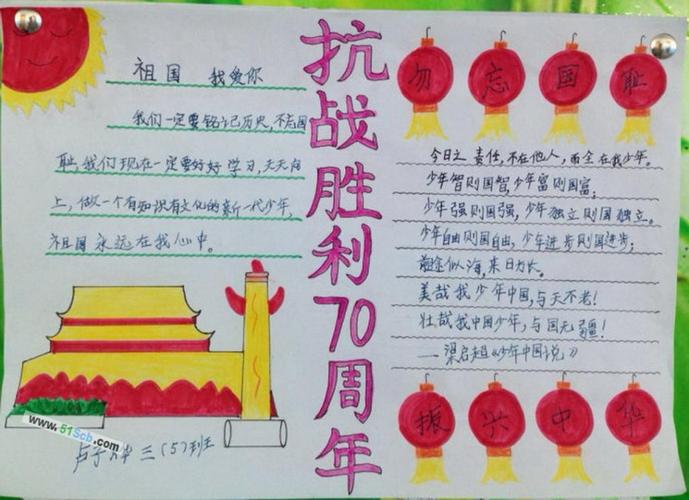 抗战胜利70周年
祖国 我爱你
我们一定要铭记历史,不忘国
耻,我们现在一定要好好学习,天天向
上,做一个有知识有文化的新一代少年,
祖国永远在我心中。
勿忘国耻
今日之责任,不在他人,而全在我少年。
少年智则国智,少年富则国富;
少年强则国强,少年独立则国独立。
少年自由则国自由,少年进步则国进步;
前途似海,来日方长。
美哉我少年中国,与天不老!
壮哉我中国少年,与国无疆!
—梁启超《少年中国说》
振兴中华
www.51Scb.com
三(5)班